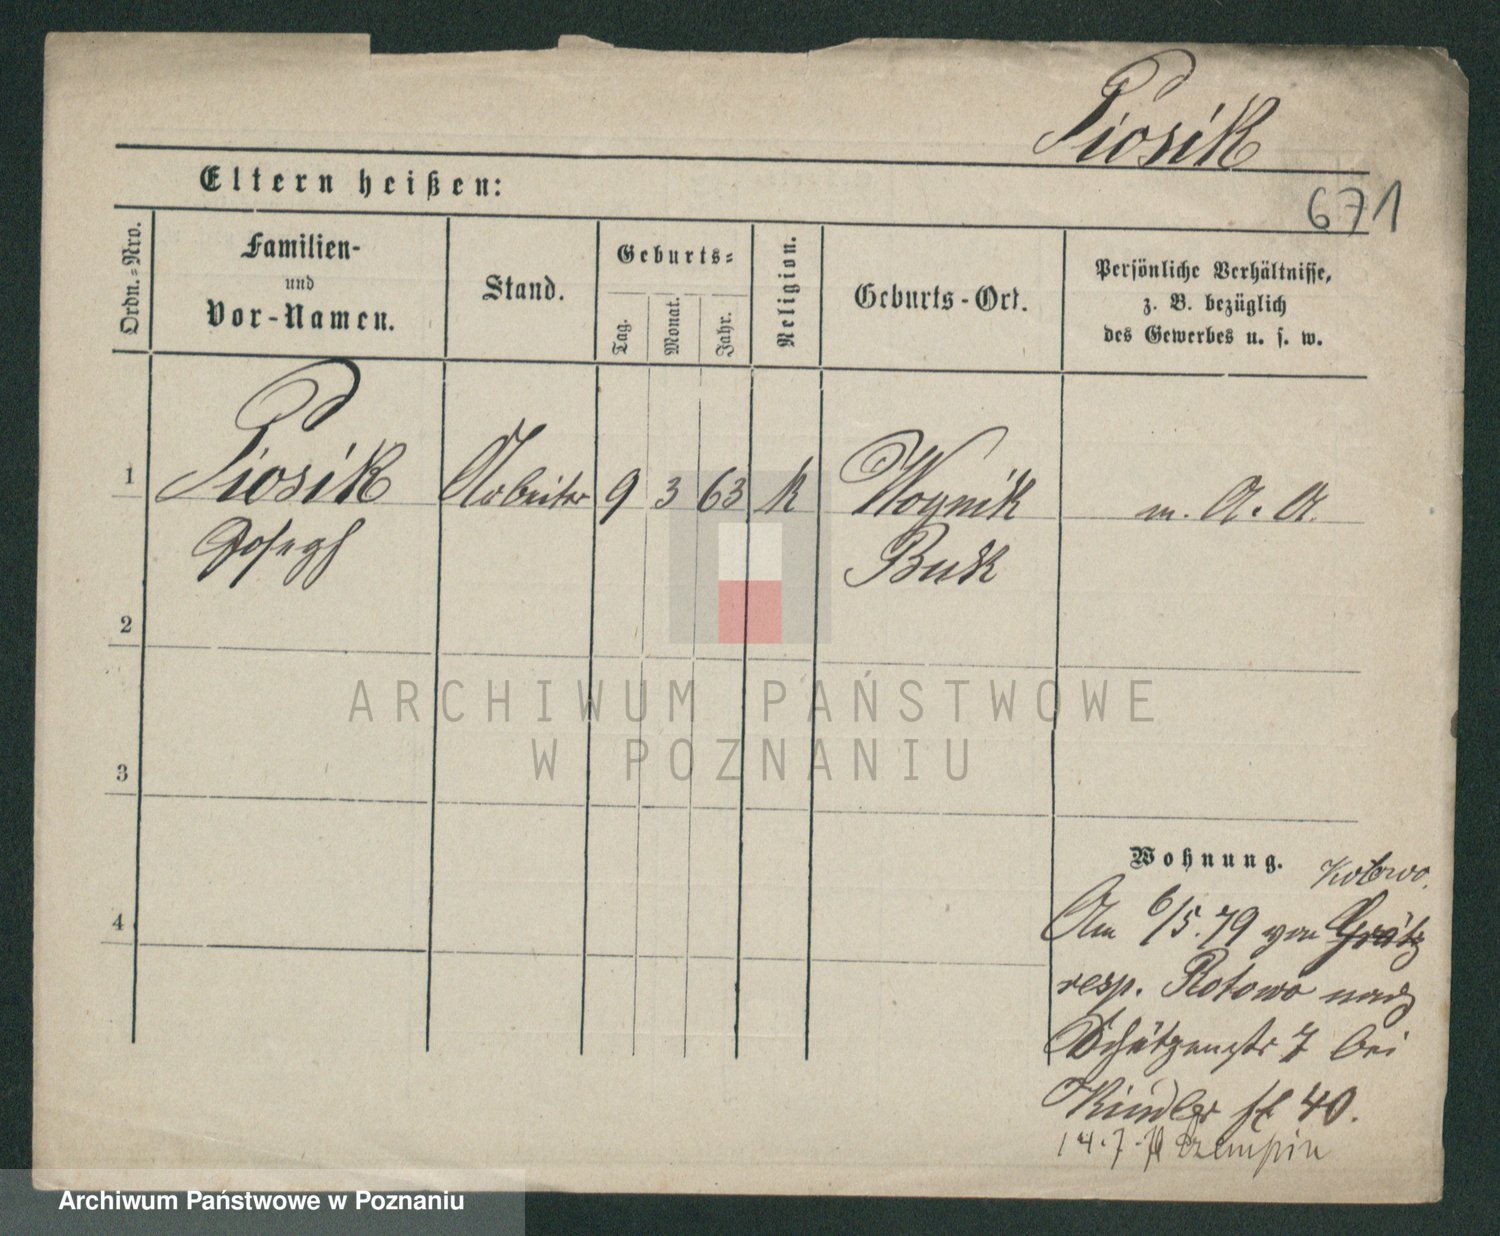 Piosik
671
Eltern heißen:
Ordn.=Nro.
Familien-
und
Vor-Namen.
Stand.
Geburts=
Tag.
Monat.
Jahr.
Religion.
Geburts-Ort.
Persönliche Verhältnisse,
z. B. bezüglich
des Gewerbes u. s. w.
1
Piosik Arbeiter 9 3 63 k Woynik m. A. A.
Joseph Buk
2
3
4
Wohnung.
Kotowo.
Am 6/5.79 von Grätz
resp. Kotowo nach
Schützenstr 7 bei
Kindler 40.
14.7.79 Czempin
ARCHIWUM PAŃSTWOWE
W POZNANIU
Archiwum Państwowe w Poznaniu